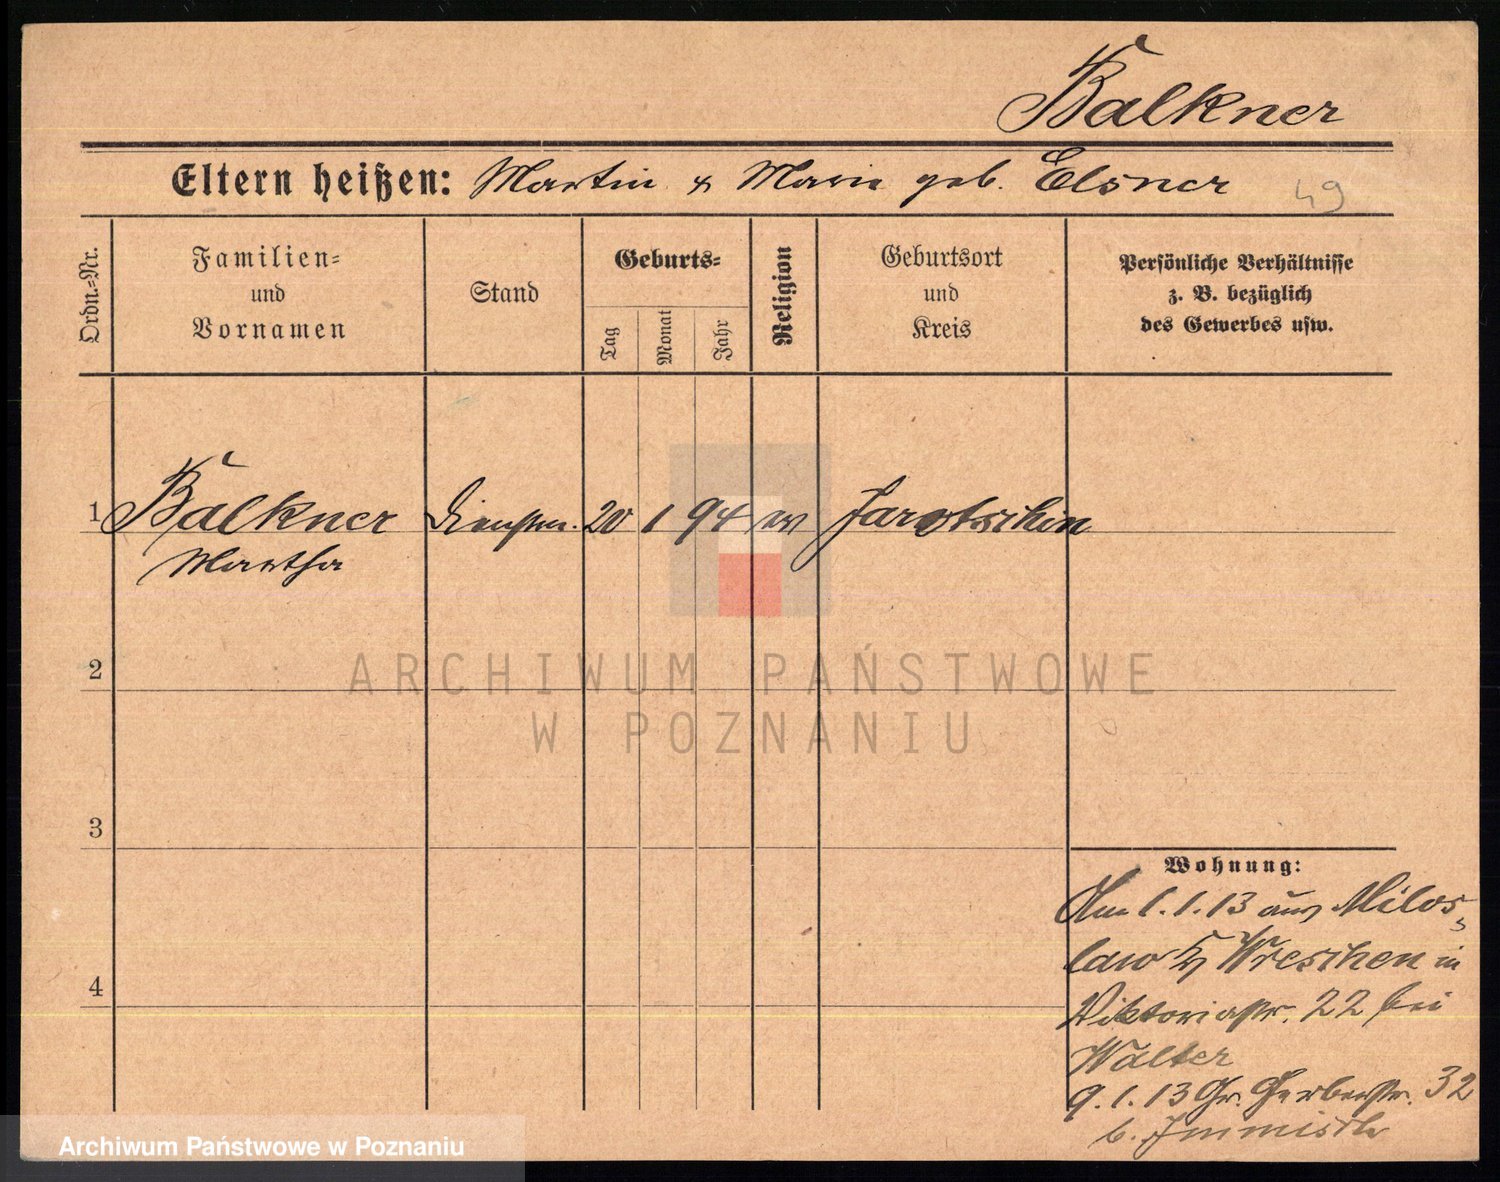 Balkner
Eltern heißen: Martin & Marie geb. Elsner
49
Ordn.-Nr.
Familien-
und
Vornamen
Stand
Geburts-
Tag
Monat
Jahr
Religion
Geburtsort
und
Kreis
Persönliche Verhältnisse
z. B. bezüglich
des Gewerbes usw.
1 Balkner Dienstm. 20 1 94 ev Jarotschin
Martha
2
ARCHIWUM PAŃSTWOWE
W POZNANIU
3
Wohnung:
Am 1.1.13 aus Milos-
law Kr Wreschen in
4
Viktoriastr. 22 bei
Walter
9.1.13 Gr. Gerberstr. 32
b. Immisch
Archiwum Państwowe w Poznaniu